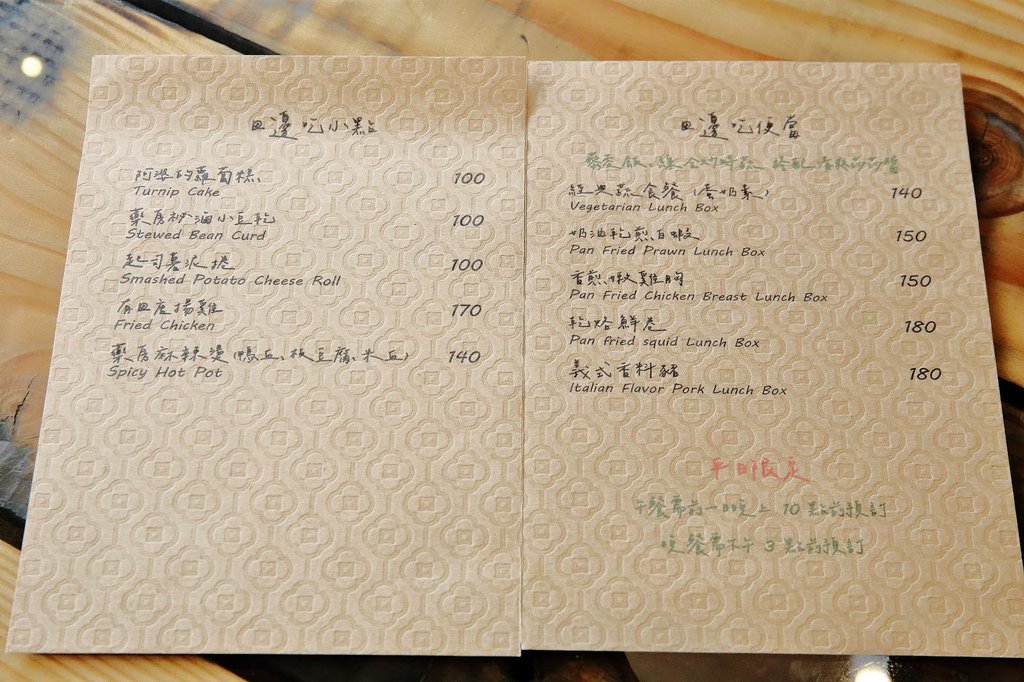 田邊吃小點
阿婆的蘿蔔糕 100
Turnip Cake
藥房秘滷小豆乾 100
Stewed Bean Curd
起司薯泥捲 100
Smashed Potato Cheese Roll
有田唐揚雞 170
Fried Chicken
藥房麻辣燙(鴨血、板豆腐、米血) 140
Spicy Hot Pot
田邊吃便當
藜麥飯、綜合炒時蔬 搭配 莎莎醬
經典蔬食餐(蛋奶素) 140
Vegetarian Lunch Box
奶油乾煎白蝦 150
Pan Fried Prawn Lunch Box
香煎嫩雞胸 150
Pan Fried Chicken Breast Lunch Box
乾烙鮮卷 180
Pan fried squid Lunch Box
義式香料豬 180
Italian Flavor Pork Lunch Box
平日限定
午餐需前一日晚上 10 點前預訂
晚餐需下午 3 點前預訂